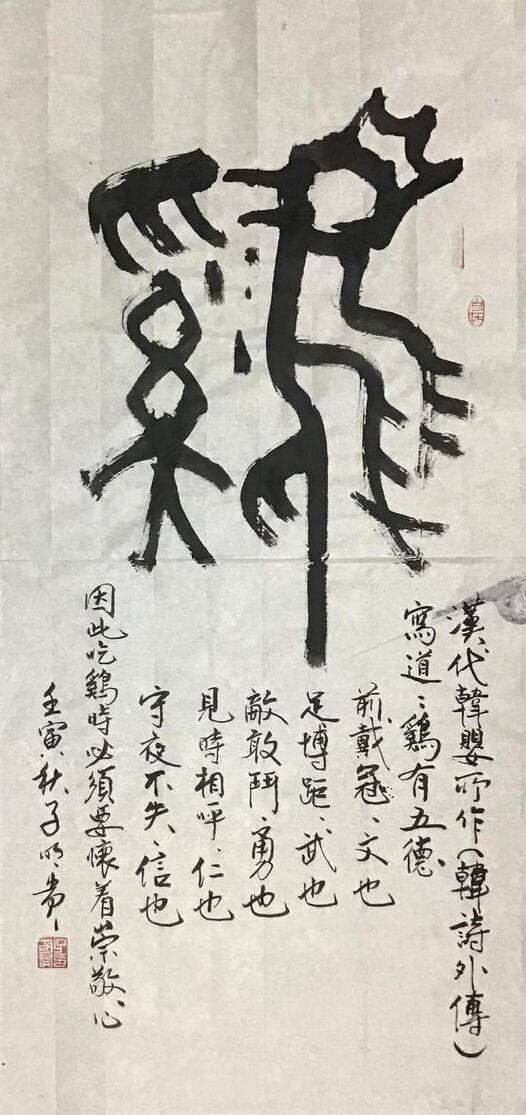 鷄
漢代韓嬰所作(韓詩外傳)
寫道:鷄有五德
前戴冠、文也
足搏距、武也
敵敢鬥、勇也
見時相呼、仁也
守夜不失、信也
因此吃鷄時必須要懷着崇敬心
壬寅秋子明